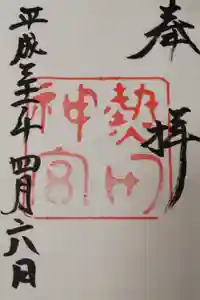 奉拝
熱田神宮
平成三十一年四月六日